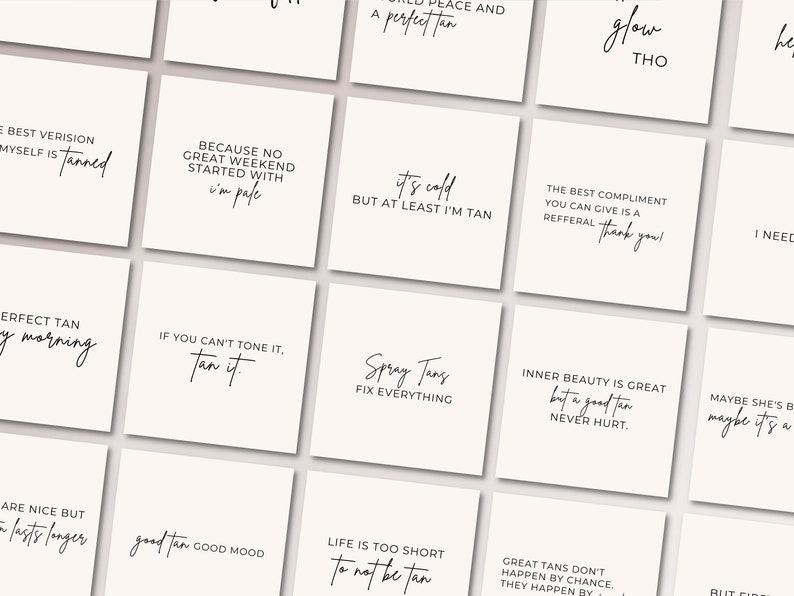 WORLD PEACE AND
A perfect tan
glow
THO
BEST VERISION
MYSELF IS tanned
BECAUSE NO
GREAT WEEKEND
STARTED WITH
i'm pale
it's cold
BUT AT LEAST I'M TAN
THE BEST COMPLIMENT
YOU CAN GIVE IS A
REFFERAL thank you!
I NEED
TAN
morning
IF YOU CAN'T TONE IT,
tan it.
Spray Tans
FIX EVERYTHING
INNER BEAUTY IS GREAT
but a good tan
NEVER HURT.
MAYBE SHE'S B
maybe it's a
ARE NICE BUT
lasts longer
good tan GOOD MOOD
LIFE IS TOO SHORT
to not be tan
GREAT TANS DON'T
HAPPEN BY CHANCE.
THEY HAPPEN BY